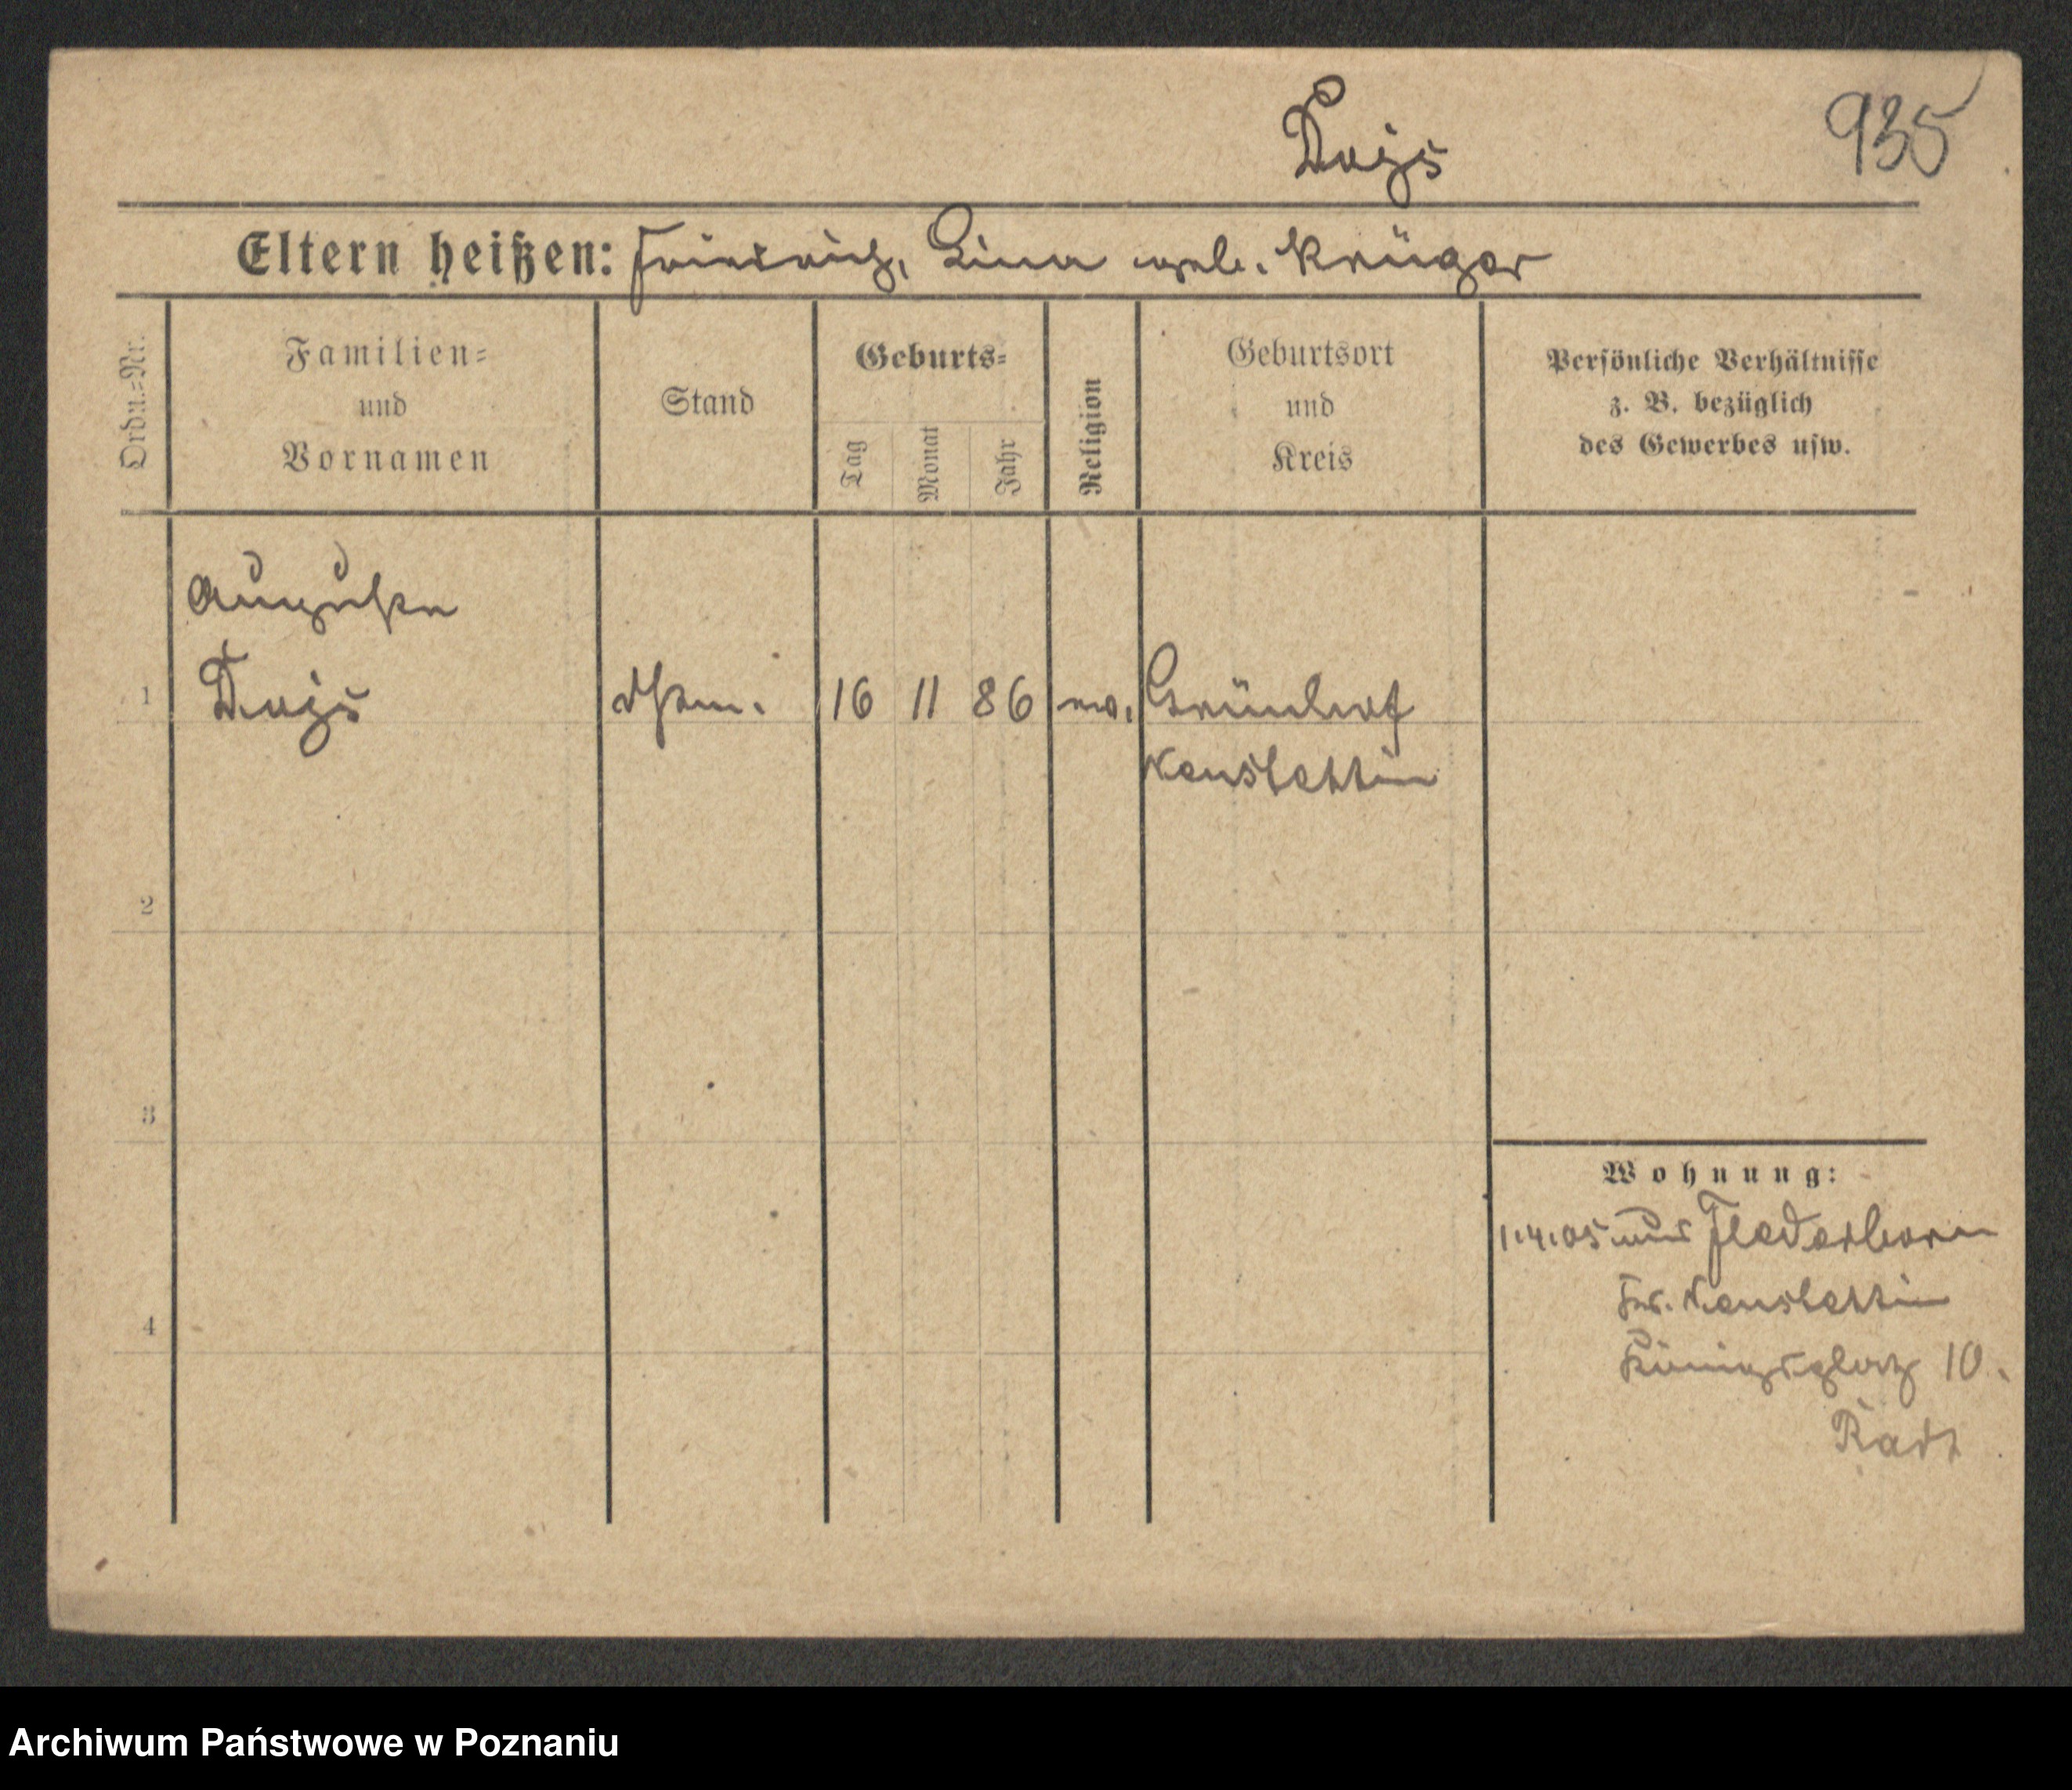 Dojs
935
Eltern heißen: Friedrich, Lina geb. Krüger
Ordn.=Nr.
Familien=
und
Vornamen
Stand
Geburts=
Tag
Monat
Jahr
Religion
Geburtsort
und
Kreis
Persönliche Verhältnisse
z. B. bezüglich
des Gewerbes usw.
Auguste
1 Dojs 16 11 86 ev. Grünhof
Neustettin
2
3
4
Wohnung:
1.4.05 aus Flederborn
Kr. Neustettin
Königsplatz 10.
Radt
Archiwum Państwowe w Poznaniu